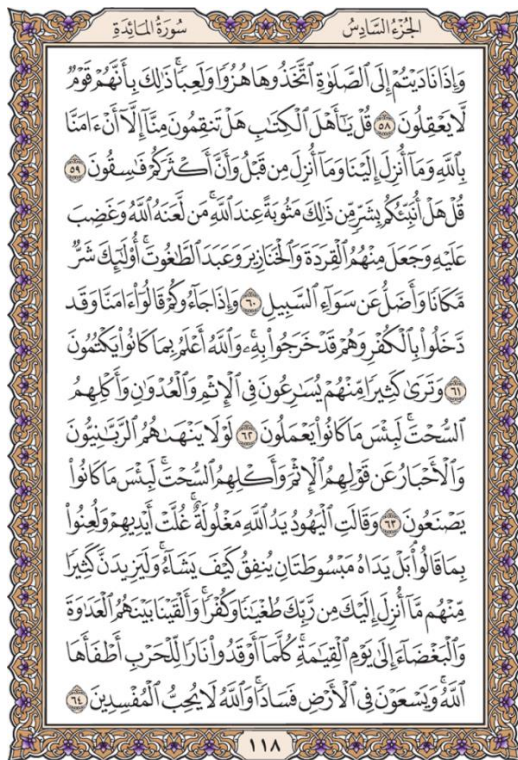 الجُزْءُ السَّادِسُ
سُورَةُ المَائِدَةِ
وَإِذَا نَادَيْتُمْ إِلَى ٱلصَّلَوٰةِ ٱتَّخَذُوهَا هُزُوًا وَلَعِبًا ۚ ذَٰلِكَ بِأَنَّهُمْ قَوْمٌ
لَّا يَعْقِلُونَ ٥٨ قُلْ يَـٰٓأَهْلَ ٱلْكِتَـٰبِ هَلْ تَنقِمُونَ مِنَّآ إِلَّآ أَنْ ءَامَنَّا
بِٱللَّهِ وَمَآ أُنزِلَ إِلَيْنَا وَمَآ أُنزِلَ مِن قَبْلُ وَأَنَّ أَكْثَرَكُمْ فَـٰسِقُونَ ٥٩
قُلْ هَلْ أُنَبِّئُكُم بِشَرٍّ مِّن ذَٰلِكَ مَثُوبَةً عِندَ ٱللَّهِ ۚ مَن لَّعَنَهُ ٱللَّهُ وَغَضِبَ
عَلَيْهِ وَجَعَلَ مِنْهُمُ ٱلْقِرَدَةَ وَٱلْخَنَازِيرَ وَعَبَدَ ٱلطَّـٰغُوتَ ۚ أُو۟لَـٰٓئِكَ شَرٌّ
مَّكَانًا وَأَضَلُّ عَن سَوَآءِ ٱلسَّبِيلِ ٦٠ وَإِذَا جَآءُوكُمْ قَالُوٓا۟ ءَامَنَّا وَقَد
دَّخَلُوا۟ بِٱلْكُفْرِ وَهُمْ قَدْ خَرَجُوا۟ بِهِۦ ۚ وَٱللَّهُ أَعْلَمُ بِمَا كَانُوا۟ يَكْتُمُونَ
٦١ وَتَرَىٰ كَثِيرًا مِّنْهُمْ يُسَـٰرِعُونَ فِى ٱلْإِثْمِ وَٱلْعُدْوَٰنِ وَأَكْلِهِمُ
ٱلسُّحْتَ ۚ لَبِئْسَ مَا كَانُوا۟ يَعْمَلُونَ ٦٢ لَوْلَا يَنْهَىٰهُمُ ٱلرَّبَّـٰنِيُّونَ
وَٱلْأَحْبَارُ عَن قَوْلِهِمُ ٱلْإِثْمَ وَأَكْلِهِمُ ٱلسُّحْتَ ۚ لَبِئْسَ مَا كَانُوا۟
يَصْنَعُونَ ٦٣ وَقَالَتِ ٱلْيَهُودُ يَدُ ٱللَّهِ مَغْلُولَةٌ ۚ غُلَّتْ أَيْدِيهِمْ وَلُعِنُوا۟
بِمَا قَالُوا۟ ۘ بَلْ يَدَاهُ مَبْسُوطَتَانِ يُنفِقُ كَيْفَ يَشَآءُ ۚ وَلَيَزِيدَنَّ كَثِيرًا
مِّنْهُم مَّآ أُنزِلَ إِلَيْكَ مِن رَّبِّكَ طُغْيَـٰنًا وَكُفْرًا ۚ وَأَلْقَيْنَا بَيْنَهُمُ ٱلْعَدَٰوَةَ
وَٱلْبَغْضَآءَ إِلَىٰ يَوْمِ ٱلْقِيَـٰمَةِ ۚ كُلَّمَآ أَوْقَدُوا۟ نَارًا لِّلْحَرْبِ أَطْفَأَهَا
ٱللَّهُ ۚ وَيَسْعَوْنَ فِى ٱلْأَرْضِ فَسَادًا ۚ وَٱللَّهُ لَا يُحِبُّ ٱلْمُفْسِدِينَ ٦٤
١١٨